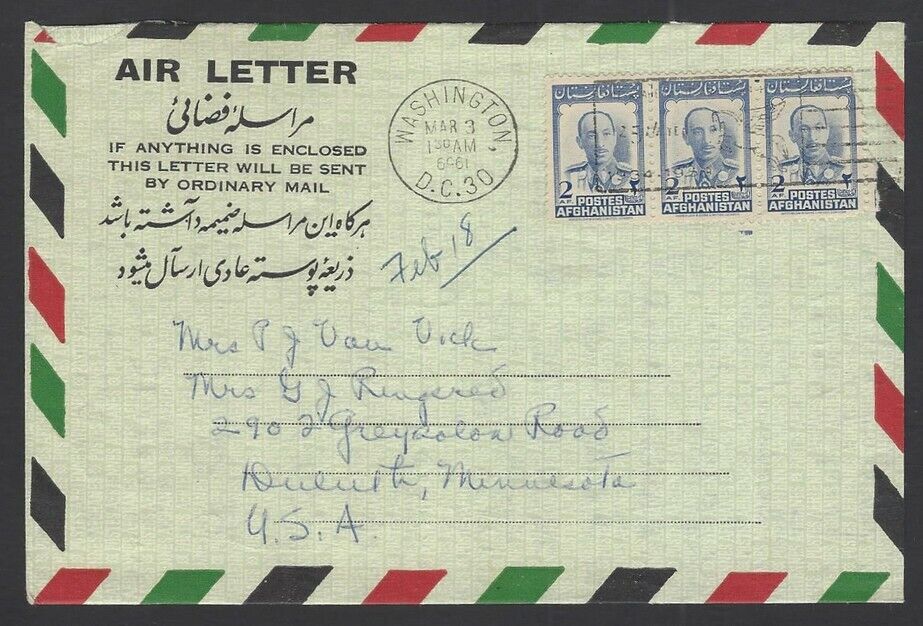 AIR LETTER
مراسلهٔ فضائی
IF ANYTHING IS ENCLOSED
THIS LETTER WILL BE SENT
BY ORDINARY MAIL
هرگاه این مراسله ضمیمه داشته باشد
ذریعهٔ پوسته عادی ارسال میشود
WASHINGTON,
MAR 3
130 AM
D.C. 30
پستا فغانستان
2 AF. ۲
POSTES
AFGHANISTAN
پستا فغانستان
2 AF. ۲
POSTES
AFGHANISTAN
پستا فغانستان
2 AF. ۲
POSTES
AFGHANISTAN
Feb 18
Mrs P J Van Vick
Mrs G J
2902 Greysolon Road
Duluth, Minnesota
U.S.A.